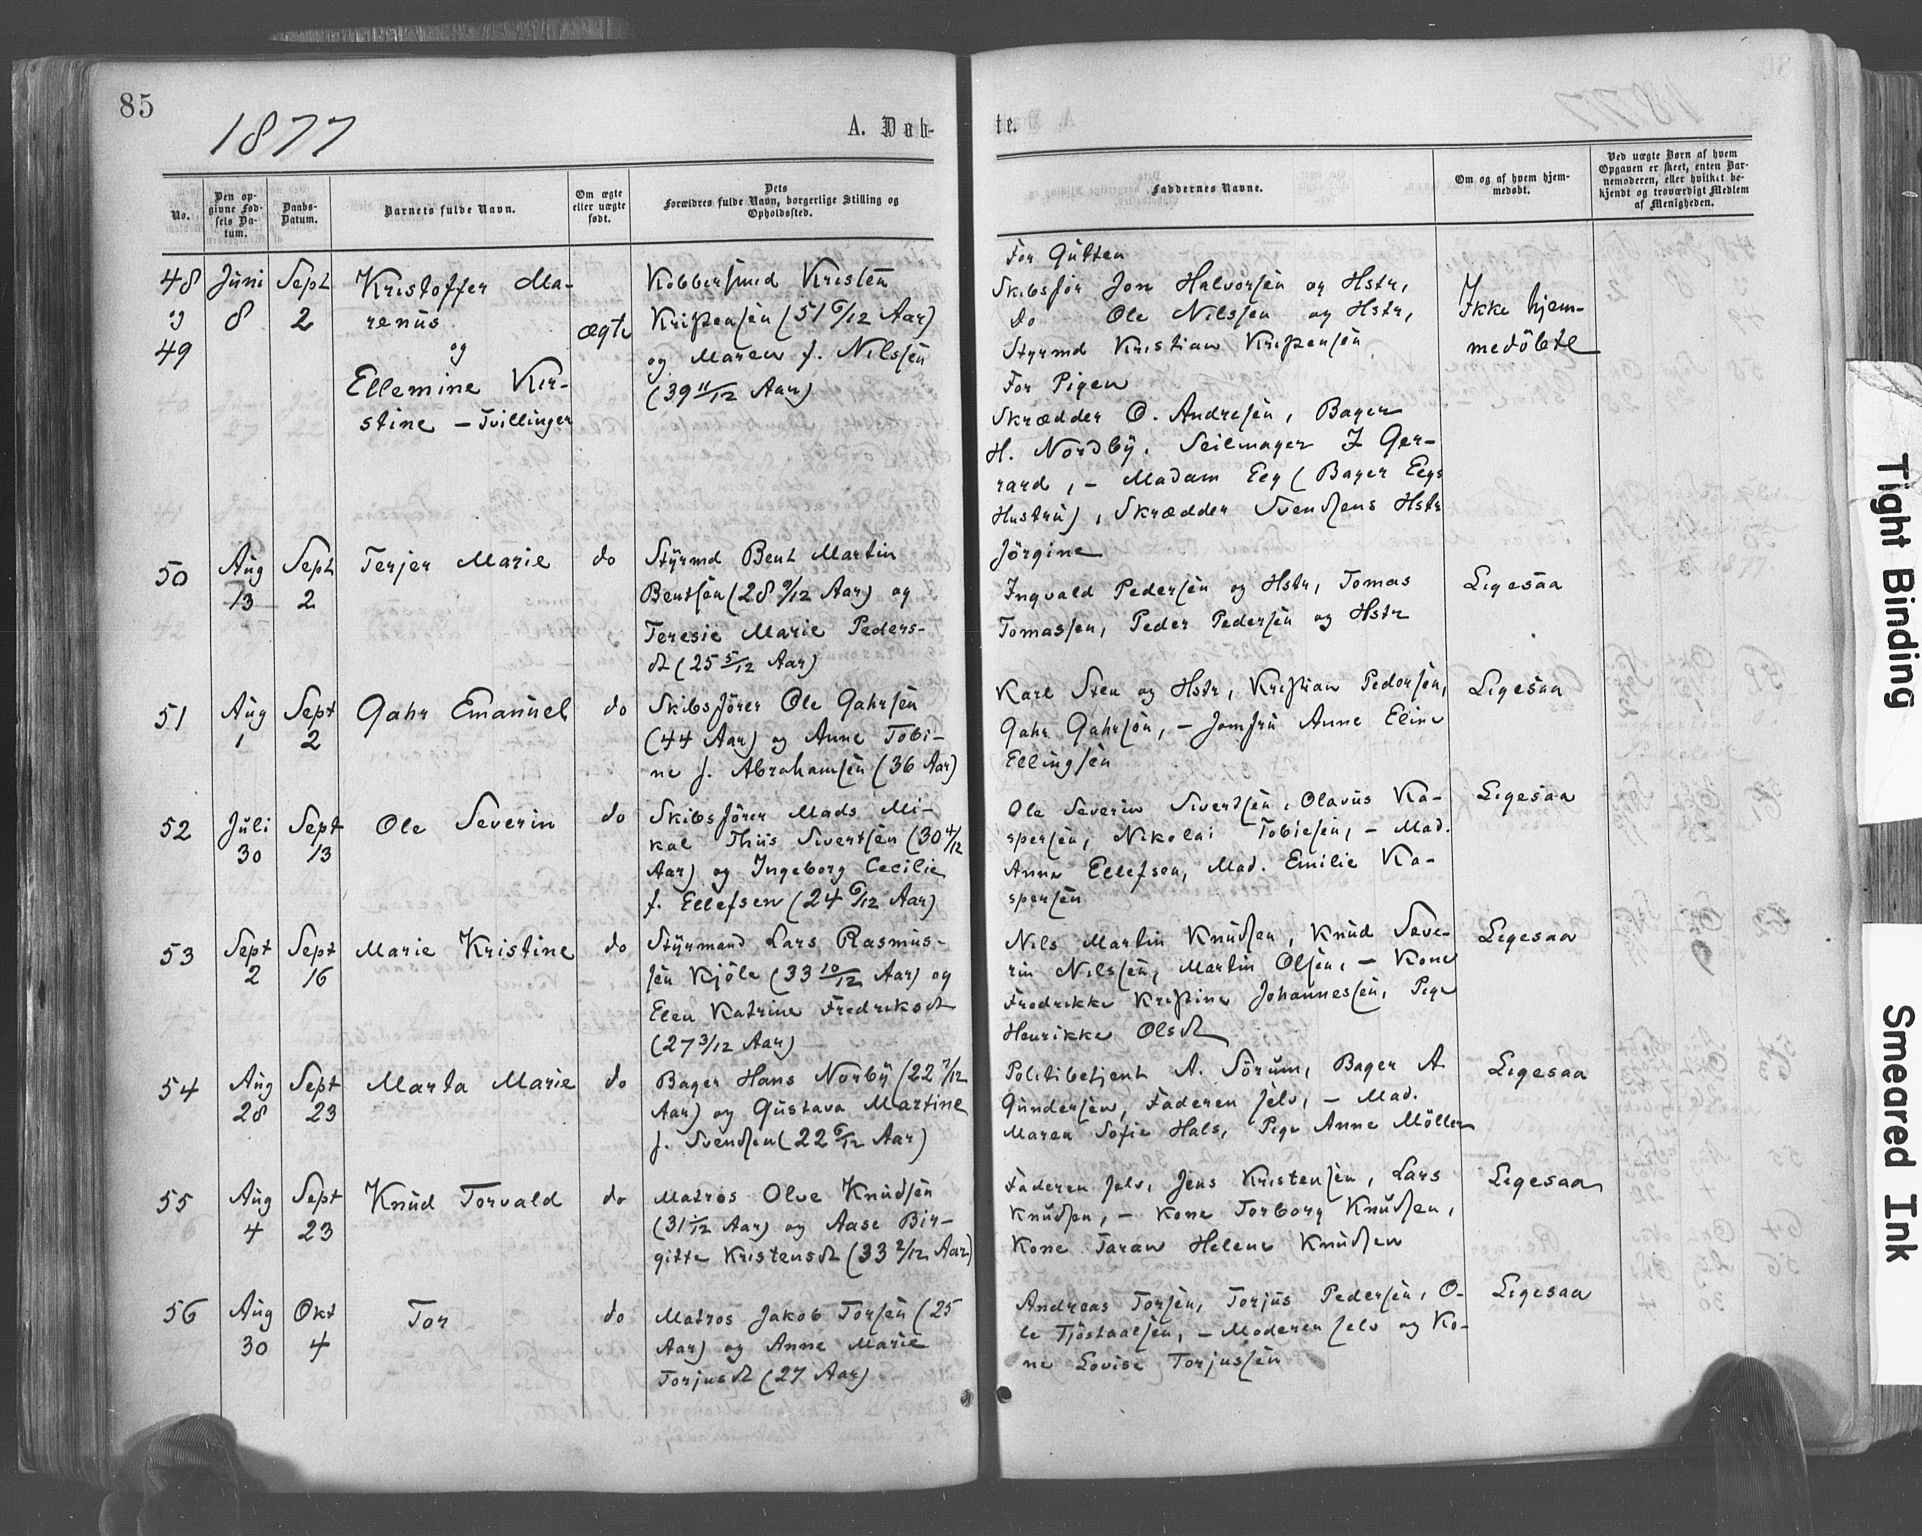 85
1877
A. Døb-
te.
No.
Den op-
givne Fød-
sels Da-
tum.
Daabs-
Datum.
Barnets fulde Navn.
Om ægte
eller uægte
født.
Dets
Forældres fulde Navn, borgerlige Stilling og
Opholdssted.
Faddernes Navne.
Om og af hvem hjem-
medøbt.
Ved uægte Børn af hvem
Opgaven er skeet, enten Bar-
nemoderen, eller hvilket be-
kjendt og troværdigt Medlem
af Menigheden.
48
og
49
Juni
8
Sept
2
Kristoffer Ma-
renus
og
Ellemine Kir-
stine – Tvillinger
ægte
Kobbersmed Kristen
Kristensen (51 6/12 Aar)
og Maren f. Nilssen
(39 11/12 Aar)
For Gutten
Skibsför Jon Halvorsen og Hstr,
do Ole Nilssen og Hstr,
Styrmd Kristian Kristensen
For Pigen
Skrædder O. Andresen, Bager
H. Nordby, Seilmager J Ger-
rard, – Madam Eeg (Bager Eegs
Hustru), Skrædder Svendsens Hstr
Jörgine
Ikke hjem-
medöbte
50
Aug
13
Sept
2
Terjer Marie
do
Styrmd Bent Martin
Bentsen (28 9/12 Aar) og
Teresie Marie Peders-
dt (25 5/12 Aar)
Ingvald Pedersen og Hstr, Tomas
Tomassen, Peder Pedersen og Hstr
Ligesaa
51
Aug
1
Sept
2
Gahr Emanuel
do
Skibsförer Ole Gahrsen
(44 Aar) og Anne Tobi-
ne f. Abrahamsen (36 Aar)
Karl Sten og Hstr, Kristian Pedersen,
Gahr Gahrsen, – Jomfru Anne Eline
Ellingsen
Ligesaa
52
Juli
30
Sept
13
Ole Severin
do
Skibsförer Mads Mi-
kal Thiis Sivertsen (30 4/12
Aar) og Ingeborg Cecilie
f. Ellefsen (24 6/12 Aar)
Ole Severin Sivertsen, Olavus Ka-
spersen, Nikolai Tobiesen, – Mad.
Anna Ellefsen, Mad. Emilie Ka-
spersen
Ligesaa
53
Sept
2
Sept
16
Marie Kristine
do
Styrmand Lars Rasmus-
sen Kjöle (33 10/12 Aar) og
Elen Katrine Fredriksdt
(27 3/12 Aar)
Nils Martin Knudsen, Knud Seve-
rin Nilssen, Martin Olsen, – Kone
Fredrikke Kristine Johannessen, Pige
Henrikke Olsdt
Ligesaa
54
Aug
28
Sept
23
Marta Marie
do
Bager Hans Norby (22 7/12
Aar) og Gustava Martine
f. Svendsen (22 6/12 Aar)
Politibetjent A. Sörum, Bager A
Gundersen, Faderen selv, – Mad.
Maren Sofie Hals, Pige Anne Möller
Ligesaa
55
Aug
4
Sept
23
Knud Torvald
do
Matros Olve Knudsen
(31 1/12 Aar) og Aase Bir-
gitte Kristensdt (33 2/12 Aar)
Faderen selv, Jens Kristensen, Lars
Knudsen, – Kone Torborg Knudsen,
Kone Taran Helene Knudsen
Ligesaa
56
Aug
30
Okt
4
Tor
do
Matros Jakob Torsen (25
Aar) og Anne Marie
Torjusdt (27 Aar)
Andreas Torsen, Torjus Pedersen, O-
le Tjöstaalsen, – Moderen selv og Ko-
ne Lovise Torjussen
Ligesaa
Tight Binding
Smeared Ink